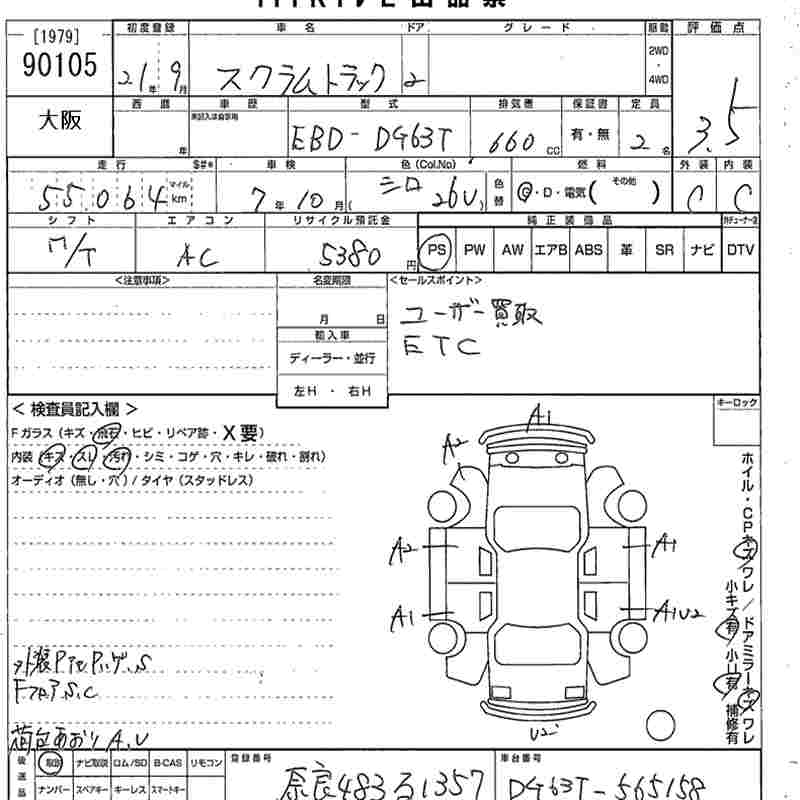 [1979] 初度登録 車名 ドア グレード 駆動 評価点
90105 21年9月 スクラムトラック 2 2WD・4WD 3.5
大阪 西暦 車歴 型式 排気量 保証書 定員
年 未記入は自家用 EBD-DG63T 660cc 有・無 2名
走行 車検 色(Col.No) 燃料 外装 内装
55,064 マイル km 7年10月 シロ(26U) 色替 G・D・電気( その他 ) C C
シフト エアコン リサイクル預託金 純正装備品
M/T AC 5380円 PS PW AW エアB ABS 革 SR ナビ DTV
<注意事項> 名変期限 <セールスポイント>
月 日 ユーザー買取
輸入車 ETC
ディーラー・並行
左H・右H
<検査員記入欄> キーロック
Fガラス(キズ・飛石・ヒビ・リペア跡・X要)
内装(キズ・スレ・汚れ・シミ・コゲ・穴・キレ・破れ・割れ)
オーディオ(無し・穴)/タイヤ(スタッドレス)
A1
A2
A2 A1
A1 A1U2
U2
ホイル・CPキズワレ/ドアミラーキズワレ
小キズ有/小U有/補修有
荷台あおりA.U
後選品 取説 ナビ取説 ロム/SD B-CAS リモコン 登録番号 車台番号
ナンバー スペアキー キーレス スマートキー 奈良483る1357 DG63T-565158